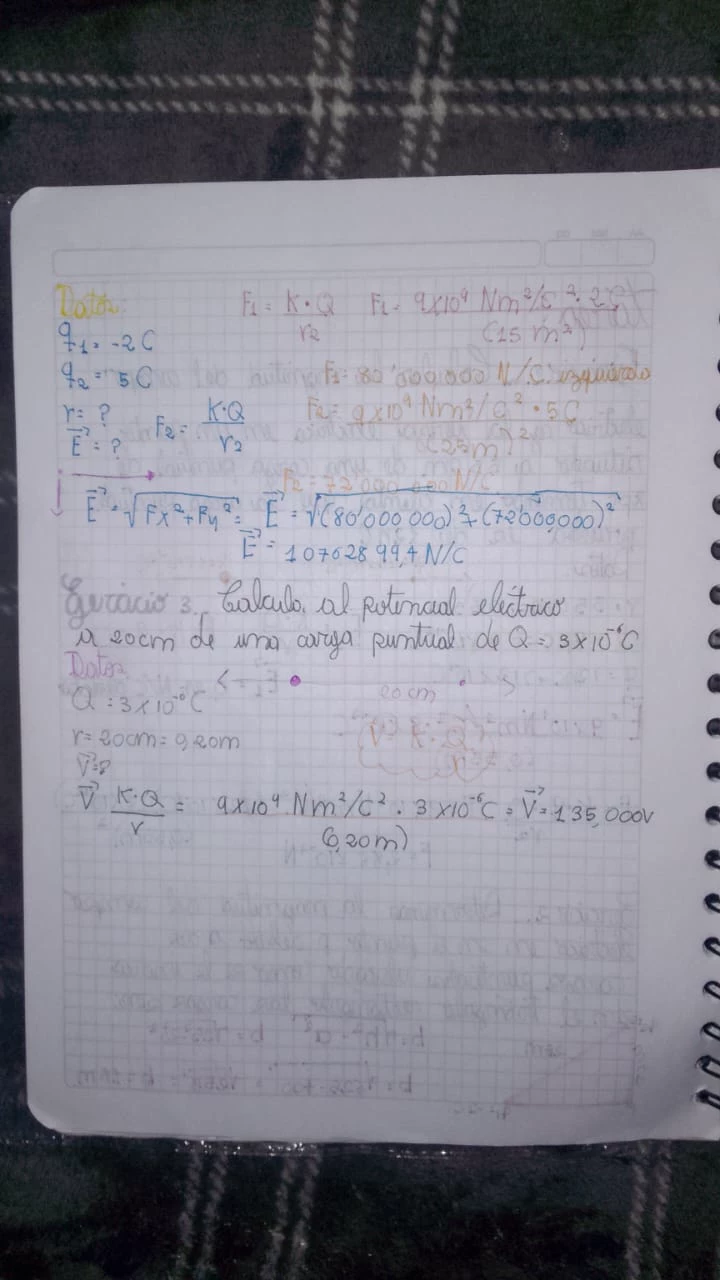 Datos:
F1 = K·Q / r2 F1 = 9x10⁹ Nm²/C²·2C / (15 m²)
q1 = -2C
q2 = 5C F1 = 80'000,000 N/C izquierda
r = ? F2 = K·Q / r2 F2 = 9x10⁹ Nm²/C²·5C / (25m)²
E = ?
F2 = 72'000,000 N/C
E = √Fx²+Fy² = E = √(80'000,000)²+(72'000,000)²
E = 107628 99,4 N/C
Ejercicio 3. Calcula al potencial eléctrico
a 20cm de una carga puntual de Q = 3x10⁻⁶C
Datos
Q = 3x10⁻⁶C 20cm
r = 20cm = 0,20m V = K·Q / r
V = ?
V K·Q / r = 9x10⁹ Nm²/C² · 3x10⁻⁶C / (0,20m) = V = 135,000V